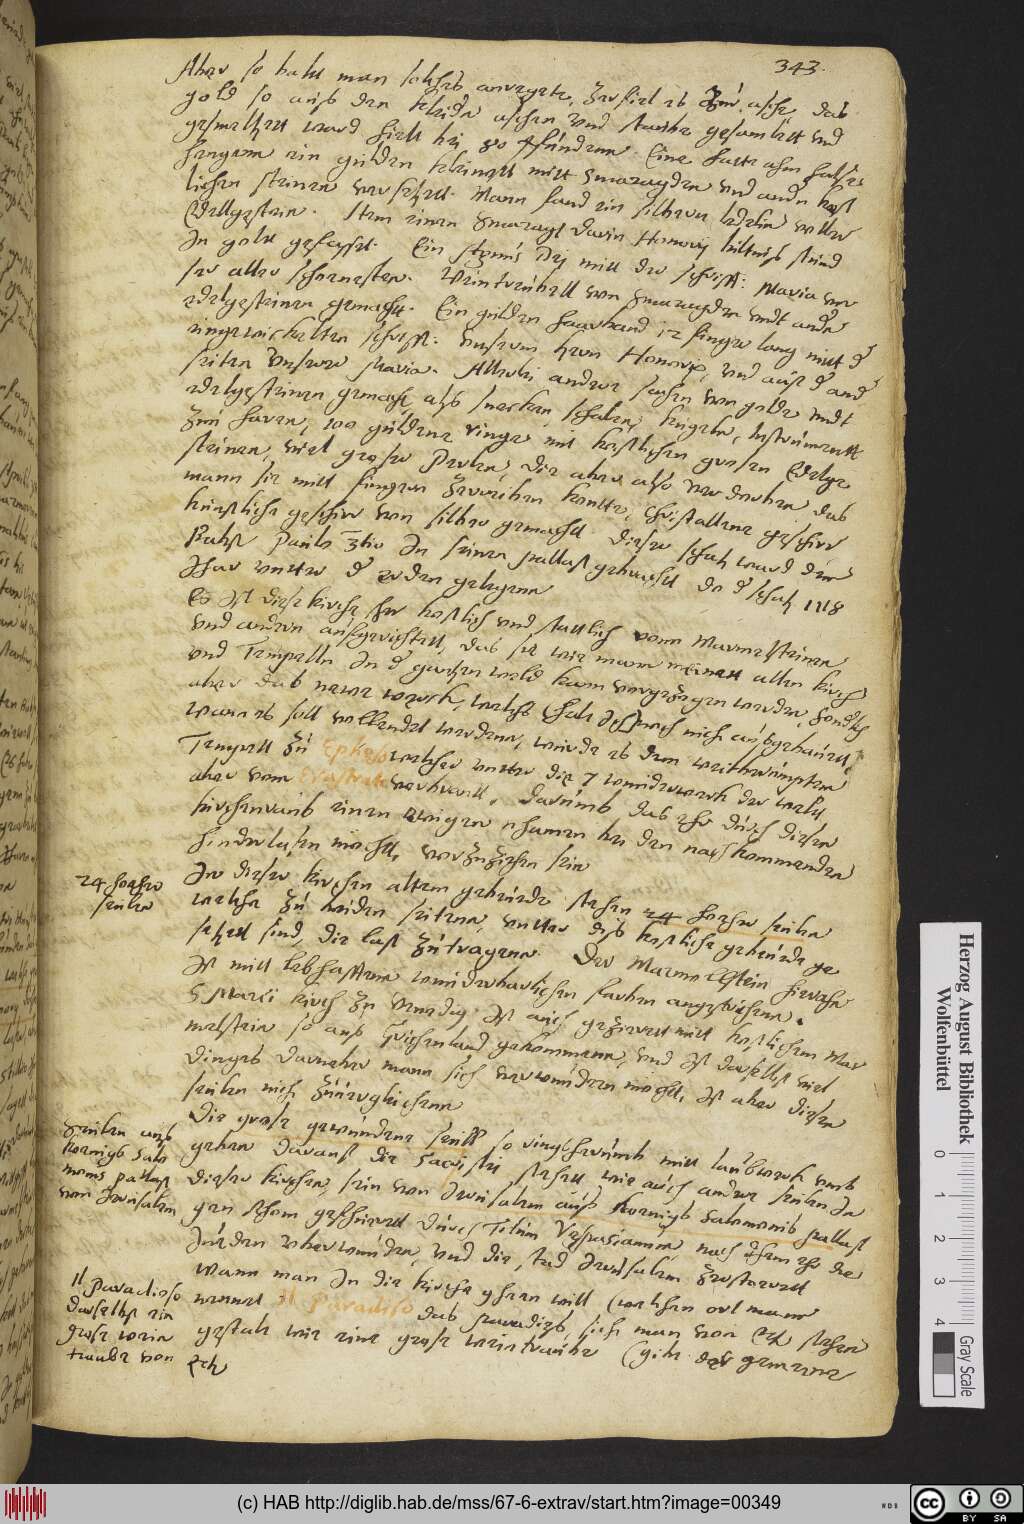 343.
Aber so baldt man solches anregete, zerfiel es zu asche das
gold so aus den kleide aschen und staube gesamlett und
geschmeltzett ward hielt bei 40 Pfundenn. Eine hatte ahm halse
hangenn ein gulden kleinott mitt smaragden und andern köst
lichen steinen versetzett. Mann fand ein silbern ledelin voller
Edellgestein. Item einen smaragt darin Honorij bildtnis stund
In golt gefasset. Ein mitt der schrifft: Maria unser
ser aller schoenesten. Weintraubell von smaragden undt andern
edelgesteinen gemacht. Ein gulden haarband 12 finger lang mitt der
eingewickelten schrifft: unserem hern Honorio, und auff der andern
seiten unserer Maria. Allerlei andere sachen von golde undt
edelgesteinen gemacht, als schalen, Instrumentt
zun haren, 100 guldene ringe mit kostlichen grosen Edelge
steinen, viel groser Perlen, die aber also verdorben das
mann sie mitt fingern zerreiben konnte, christallene geschirr
kunstliche geschirr von silber gemacht. Dieser schatz ward dem
Babst Paulo 3tio In seinen pallast gebracht da der schatz 1118
Jhar unter der erden gelegenn
Es Ist diese kirche sehr kostlich und stattlich vonn Marmelsteinen
und andern ausgerichtett, das sie wie mann meinett allen kirchen
und Tempelln In der gantzen welt kann vorgezogen werden, sondern
aber das newe werck, welchs (halt Ich) noch nicht ausgebauett,
wann es soll vollendet werdenn, wurde es dem weitberumpten
Tempell zu Epheso welcher unter die 7 wunderwerck der welt
aber vom Erastrato verbrantt, darumb das ehr durch diesen
kirchenraub einen ewigen nhamen bei den nachkommenden
hinderlasen mochtt, vorzuziehen sein
24 hoehe
seulen
In dieser kirchen altem gebeude stehen 24 hoehe seulen
welche zu beiden seitenn, unter dis kostliche gebeude ge
setzett sind, die last zutragenn. Der Marmelstein hierahn
Ist mitt lebhafftenn wunderbarlichen farben angestrichenn.
S Marci kirch zu Venedig Ist auch gezierett mitt kostlichem Mar
melstein so aus Grichenland gekommenn, und Ist daselbst viel
dinges darueber mann sich verwundern mocht, Ist aber diesen
seulen nicht zuvergleichenn
Seulen aus
Koenigs Salo
mons pallast
von Jerusalem
Die grose gewundene seull so ringsherumb mitt laubwerck umb
geben darauff die Sacristi stehett wie auch andere seulen In
dieser kirchen, sein von Jerusalem aus Koenigs Salomonis pallast
gen Rhom gefhurett durch Titum Vespasianum nach dehm ehr die
Juden uberwunden, und die stad Jerusalem zerstoerett
Il Paradiso
daselbst ein
grose wein
traube von
Ertz
Wann man In die kirche gehen will (welchen ort mann
nennett Il Paradiso das paradies, sicht man von Ertz stehen
gestalt wie eine grose weintraube (gibt der gemeine
Herzog August Bibliothek
Wolfenbüttel
0 1 2 3 4
Gray Scale
(c) HAB http://diglib.hab.de/mss/67-6-extrav/start.htm?image=00349
WDB
cc BY SA